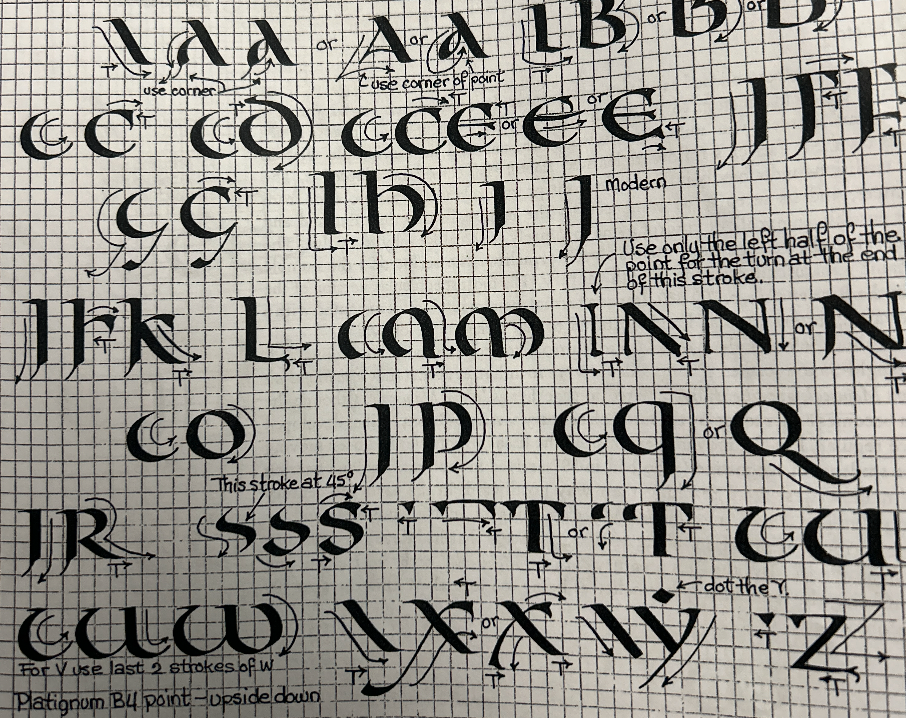 I A A or A or a I B or B or B
use corner use corner of point
C C C D C C E or E or E J J F F
G G I h J J modern
Use only the left half of the
point for the turn at the end
of this stroke.
J F K L C A M I N N or N
C O J P C q or Q
This stroke at 45°
J R S S S T or T C U
dot the Y.
C U W X or X Y Z
For V use last 2 strokes of W
Platignum B4 point - upside down